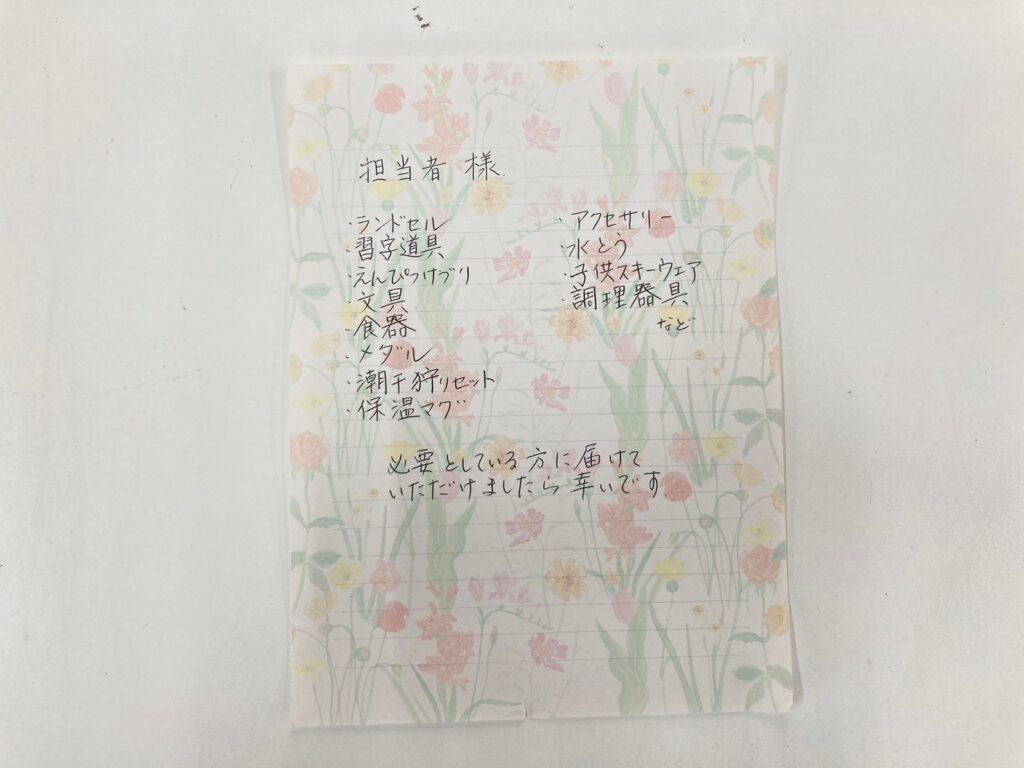 担当者 様
・ランドセル
・習字道具
・えんぴつけづり
・文具
・食器
・メダル
・潮干狩リセット
・保温マグ
・アクセサリー
・水とう
・子供スキーウェア
・調理器具
など
必要としている方に届けて
いただけましたら幸いです。